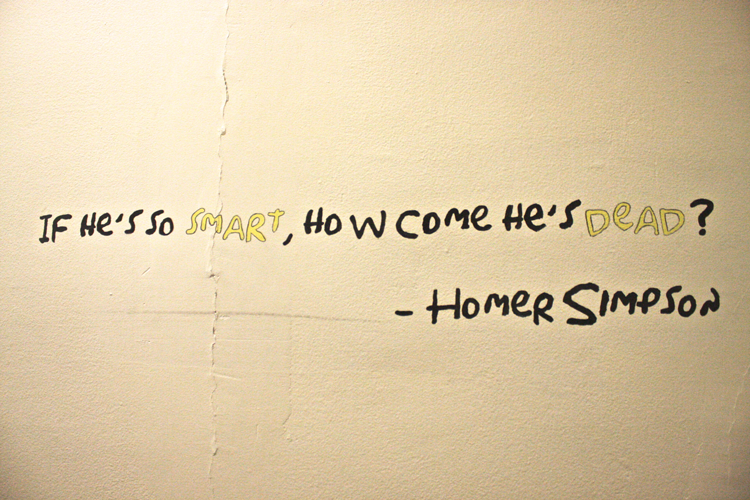 IF He's so SMART, HOW COMe He's DeAD?
- HOMeR SIMPSON